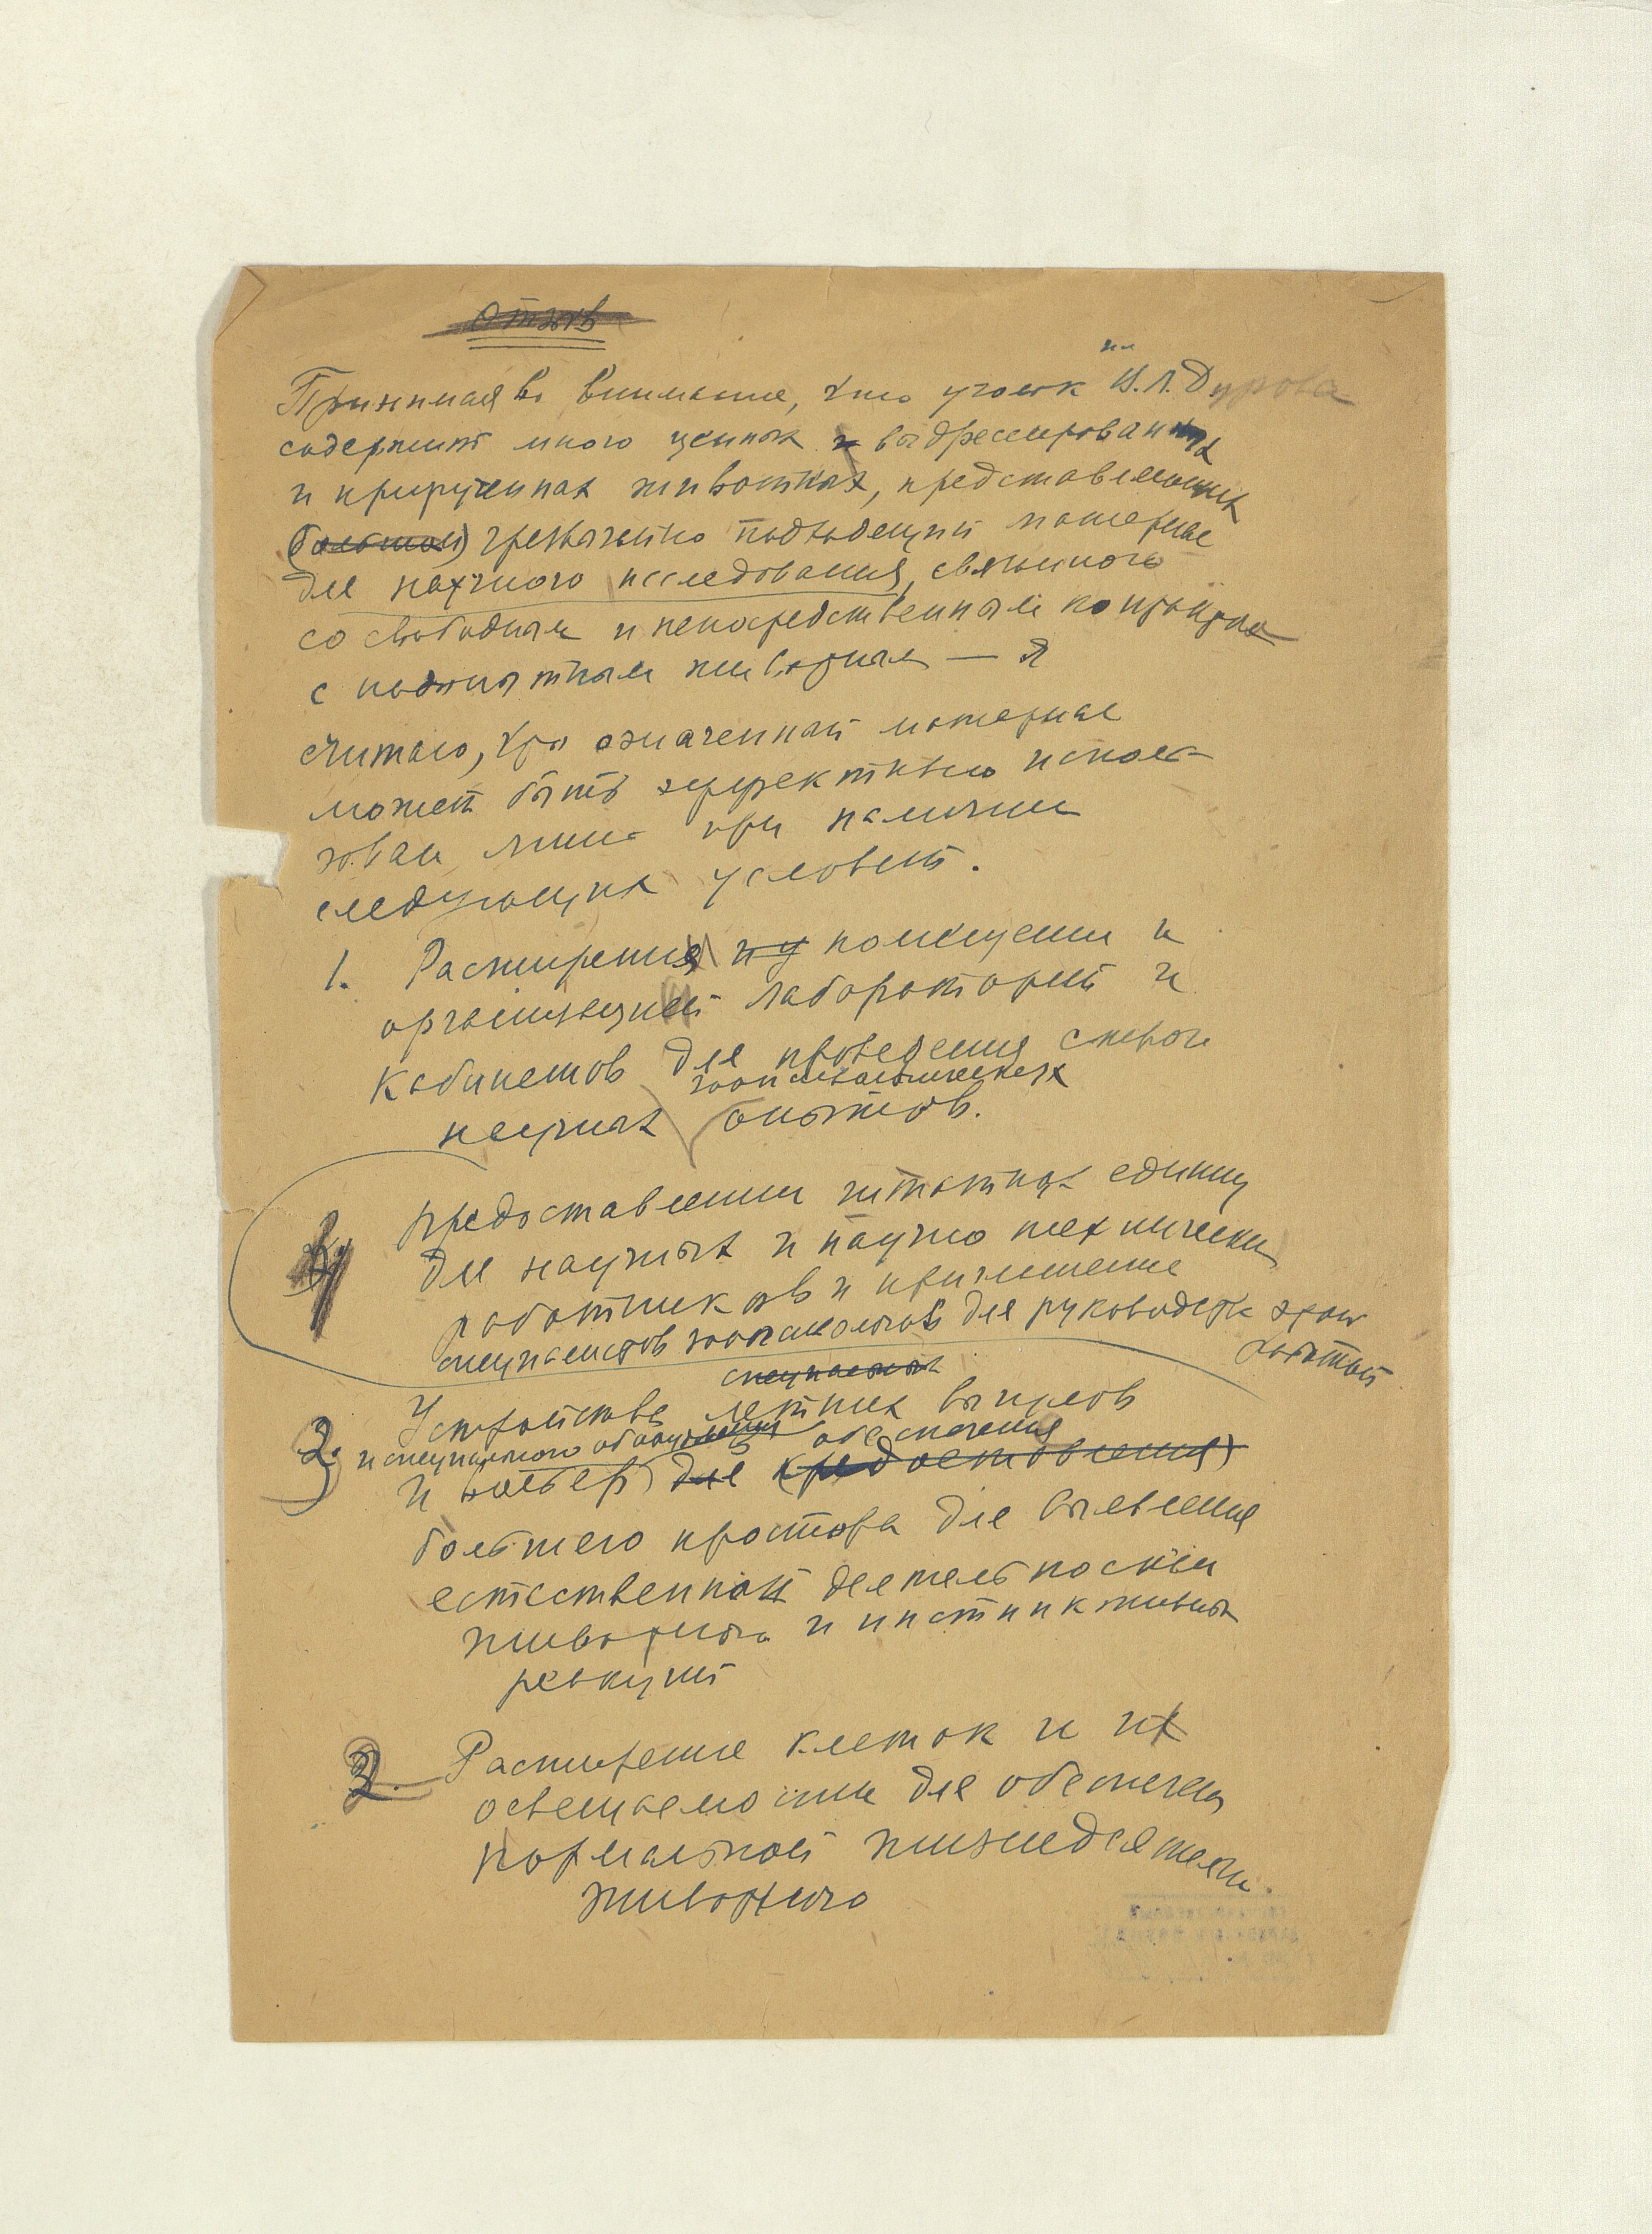 Отзыв
им
Принимая во внимание, что уголок В.Л. Дурова
содержит много ценных и выдрессированных
и прирученных животных, представляющих
(большой) чрезвычайно подходящий материал
для научного исследования, связанного
со свободным и непосредственным контактом
с подопытным животным — Я
считаю, что означенный материал
может быть эффективно исполь-
зован лишь при наличии
следующих условий.
1. Расширения помещении и
организацией лабораторий и
кабинетов для проведения специал
зоопсихологических
научных опытов.
4 предоставлении штатных единиц
для научных и научно технических
работников и приглашение
специалистов зоопсихологов для руководств этой
работой
специальных
3. Устройства летних выгулов
и специального оборудования обеспечения
и вольер для (предоставления)
большего простора для выявления
естественной деятельности
животного и инстинктивных
реакций
2. Расширение клеток и их
освещаемости для обеспечен
нормальной жизнедеятельн.
животного